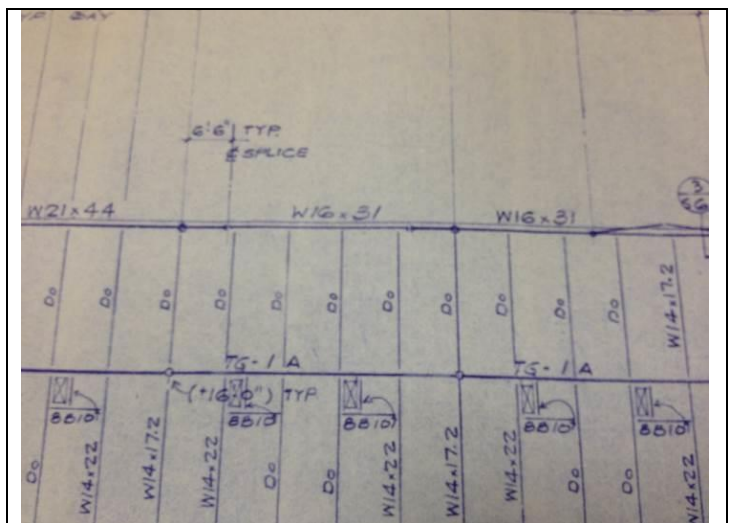 TYP. BAY
6'-6" TYP.
SPLICE
W21x44
W16x31
W16x31
3
Do
Do
Do
Do
Do
Do
Do
Do
Do
Do
W14x17.2
TG-1A
TG-1A
(+16'-0") TYP
8B10
8B10
8B10
8B10
8B10
Do
W14x22
W14x17.2
W14x22
Do
Do
W14x22
W14x17.2
W14x22
Do
Do
W14x22